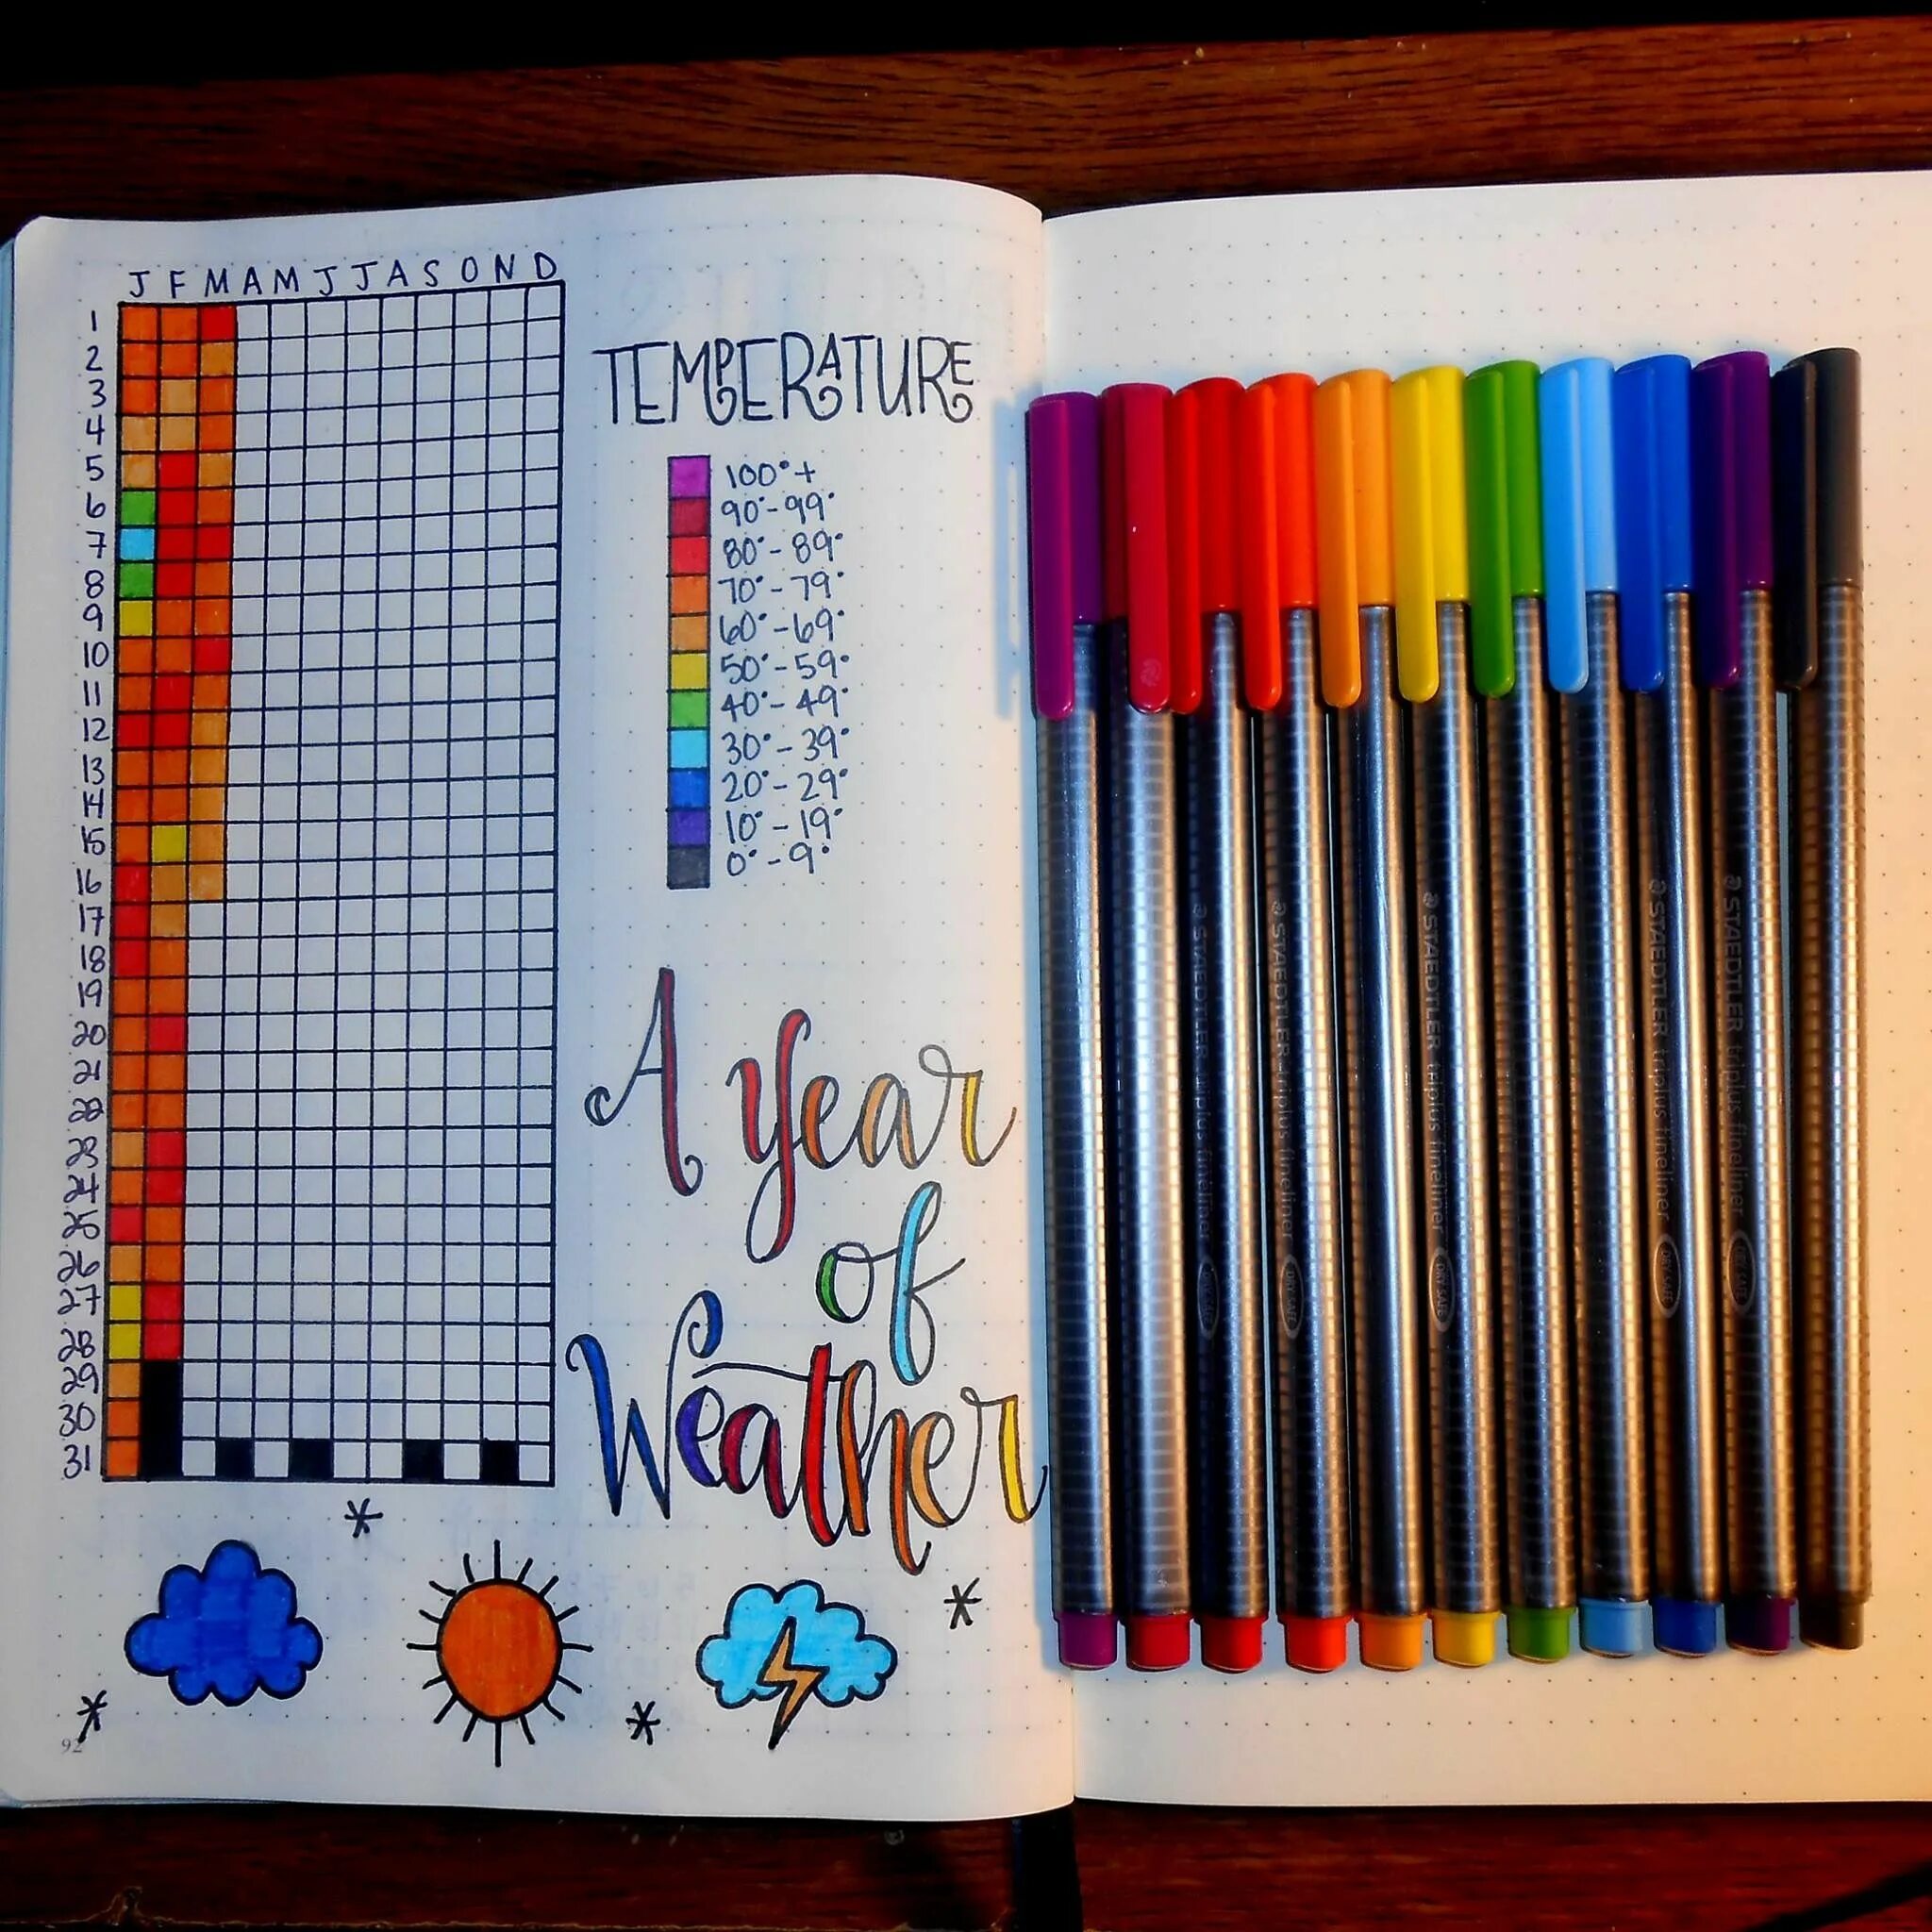 J F M A M J J A S O N D
1
2
3
4
5
6
7
8
9
10
11
12
13
14
15
16
17
18
19
20
21
22
23
24
25
26
27
28
29
30
31
TEMPERATURE
100°+
90°-99°
80°-89°
70°-79°
60°-69°
50°-59°
40°-49°
30°-39°
20°-29°
10°-19°
0°-9°
A year
of
Weather
92
STAEDTLER triplus fineliner DRY SAFE
STAEDTLER triplus fineliner DRY SAFE
STAEDTLER triplus fineliner DRY SAFE
STAEDTLER triplus fineliner DRY SAFE
STAEDTLER triplus fineliner DRY SAFE